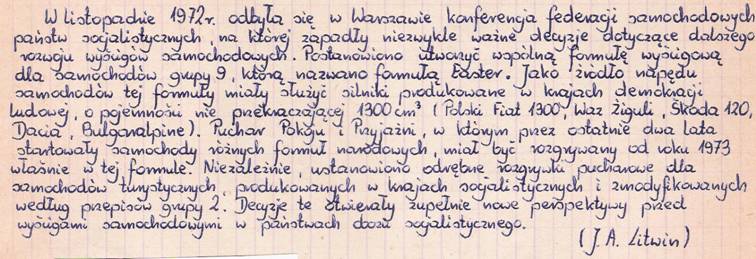 W listopadzie 1972r. odbyła się w Warszawie konferencja federacji samochodowych
państw socjalistycznych, na której zapadły niezwykle ważne decyzje dotyczące dalszego
rozwoju wyścigów samochodowych. Postanowiono utworzyć wspólną formułę wyścigową
dla samochodów grupy 9, którą nazwano formułą Easter. Jako źródło napędu
samochodów tej formuły miały służyć silniki produkowane w krajach demokracji
ludowej, o pojemności nie przekraczającej 1300 cm³ (Polski Fiat 1300, Waz Žiguli, Škoda 120,
Dacia, Bulgaralpine). Puchar Pokoju i Przyjaźni, w którym przez ostatnie dwa lata
startowały samochody różnych formuł narodowych, miał być rozgrywany od roku 1973
właśnie w tej formule. Niezależnie, ustanowiono odrębne rozgrywki pucharowe dla
samochodów turystycznych, produkowanych w krajach socjalistycznych i zmodyfikowanych
według przepisów grupy 2. Decyzje te otwierały zupełnie nowe perspektywy przed
wyścigami samochodowymi w państwach obozu socjalistycznego.
(J. A. Litwin)